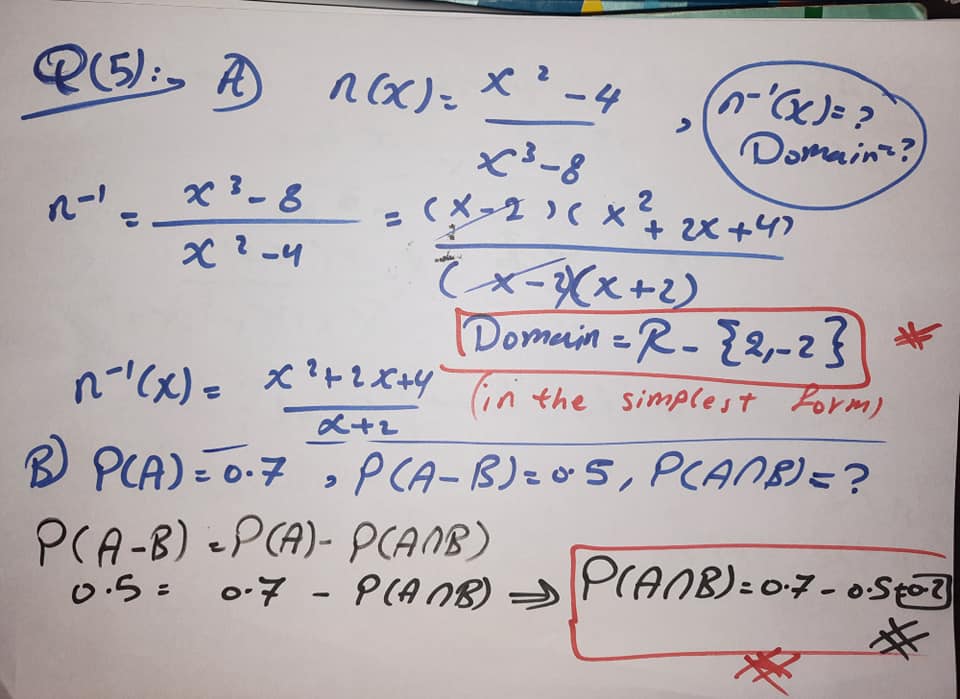 Q(5):- A) n(x) = x² - 4 / x³ - 8 , n⁻¹(x) = ? Domain = ?
n⁻¹ = x³ - 8 / x² - 4 = (x - 2)(x² + 2x + 4) / (x - 2)(x + 2)
Domain = R - {2, -2}
n⁻¹(x) = x² + 2x + 4 / x + 2 (in the simplest form)
B) P(A) = 0.7 , P(A - B) = 0.5 , P(A∩B) = ?
P(A - B) = P(A) - P(A∩B)
0.5 = 0.7 - P(A∩B) ⇒ P(A∩B) = 0.7 - 0.5 = 0.2